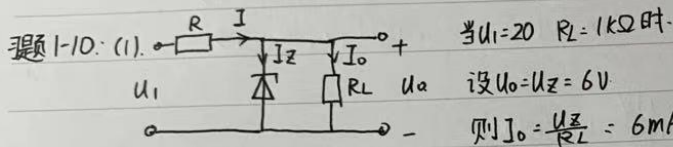 习题1-10: (1).
R
I
IZ
Io
+
U1
RL
Uo
-
当U1=20 RL=1KΩ时.
设Uo=UZ=6V
则Io=UZ/RL=6mA